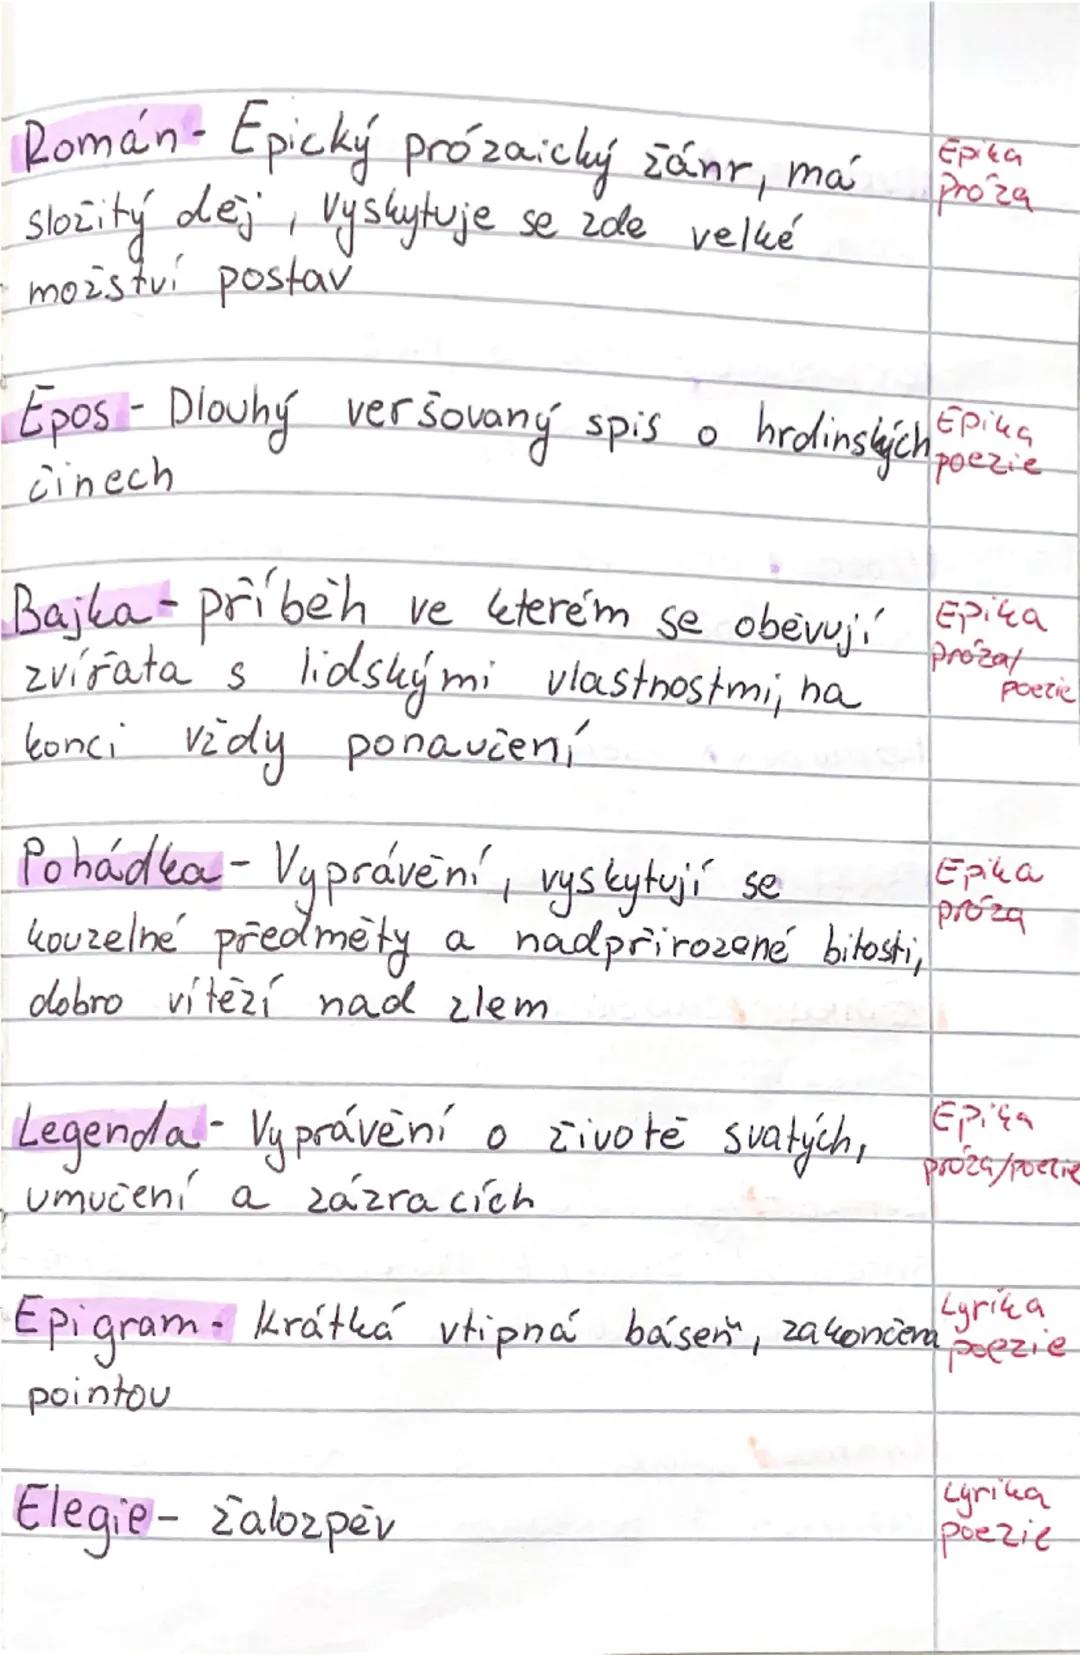 Román - Epický prózaický žánr, má Epika
složitý děj, vyskytuje se zde velké próza
možství postav
Epos - Dlouhý veršovaný spis o hrdinských Epika
činech poezie
Bajka - příběh ve kterém se oběvují Epika
zvířata s lidskými vlastnostmi, na próza/
poezie
konci vždy ponaučení
Pohádka - Vyprávění, vyskytují se Epika
próza
kouzelné předměty a nadpřirozené bitosti,
dobro vítězí nad zlem
Legenda - Vyprávění o životě svatých, Epika
próza/poezie
umučení a zázracích
Epigram - krátká vtipná báseň, zakončena Lyrika
poezie
pointou
Elegie - žalozpěv Lyrika
poezie